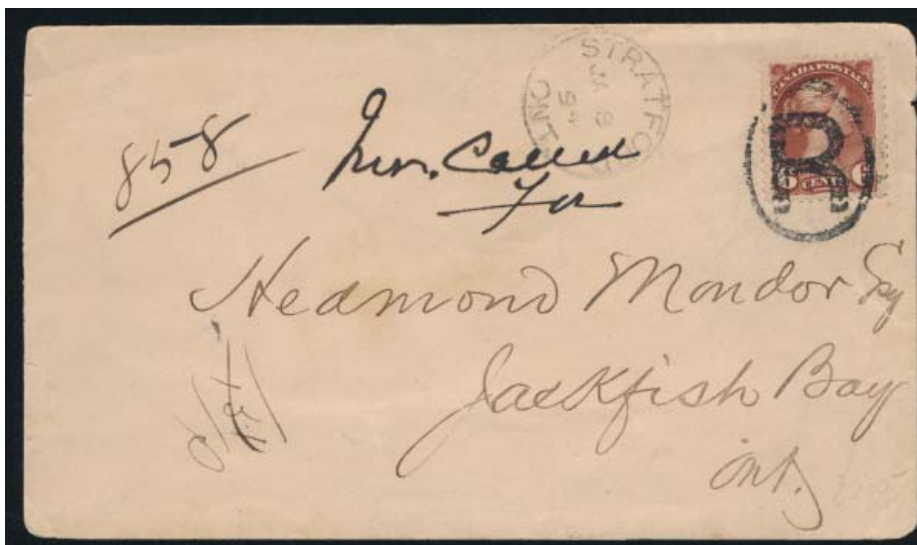 STRATFORD
JA 8
94
ONT
CANADA POSTAGE
6 CENTS 6
R
858
Called
For
Hedmond Mondor Esq
Jackfish Bay
Ont.